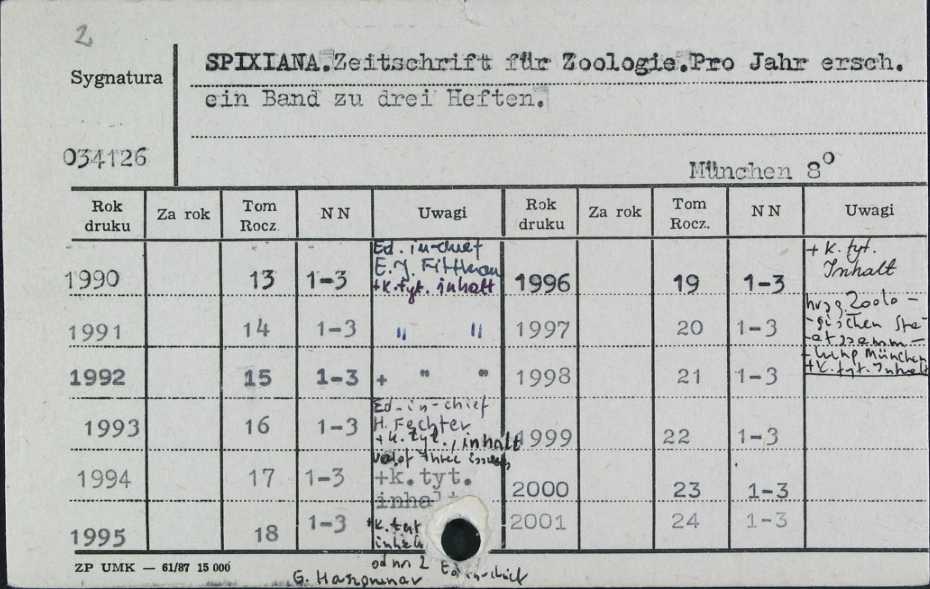 2
SPIXIANA.Zeitschrift für Zoologie.Pro Jahr ersch.
Sygnatura
ein Band zu drei Heften.
034126
München 8°
Rok druku Za rok Tom Rocz. N N Uwagi Rok druku Za rok Tom Rocz. N N Uwagi
1990 13 1-3 Ed. in-chief E.J. Fittkau +k.tyt. inhalt 1996 19 1-3 + k. tyt. Inhalt
1991 14 1-3 " " 1997 20 1-3 hrsg Zoolo-
-gischen Sta-
-atssamm-
-lung München
+k.tyt. Inhalt
1992 15 1-3 + " " 1998 21 1-3
1993 16 1-3 Ed-in-chief H. Fechter + k. tyt., inhalt vol of three issues 1999 22 1-3
1994 17 1-3 +k.tyt. inhalt 2000 23 1-3
1995 18 1-3 +k. tyt inhalt od nr 2 Ed in-chief 2001 24 1-3
G. Haszprunar
ZP UMK — 61/87 15 000